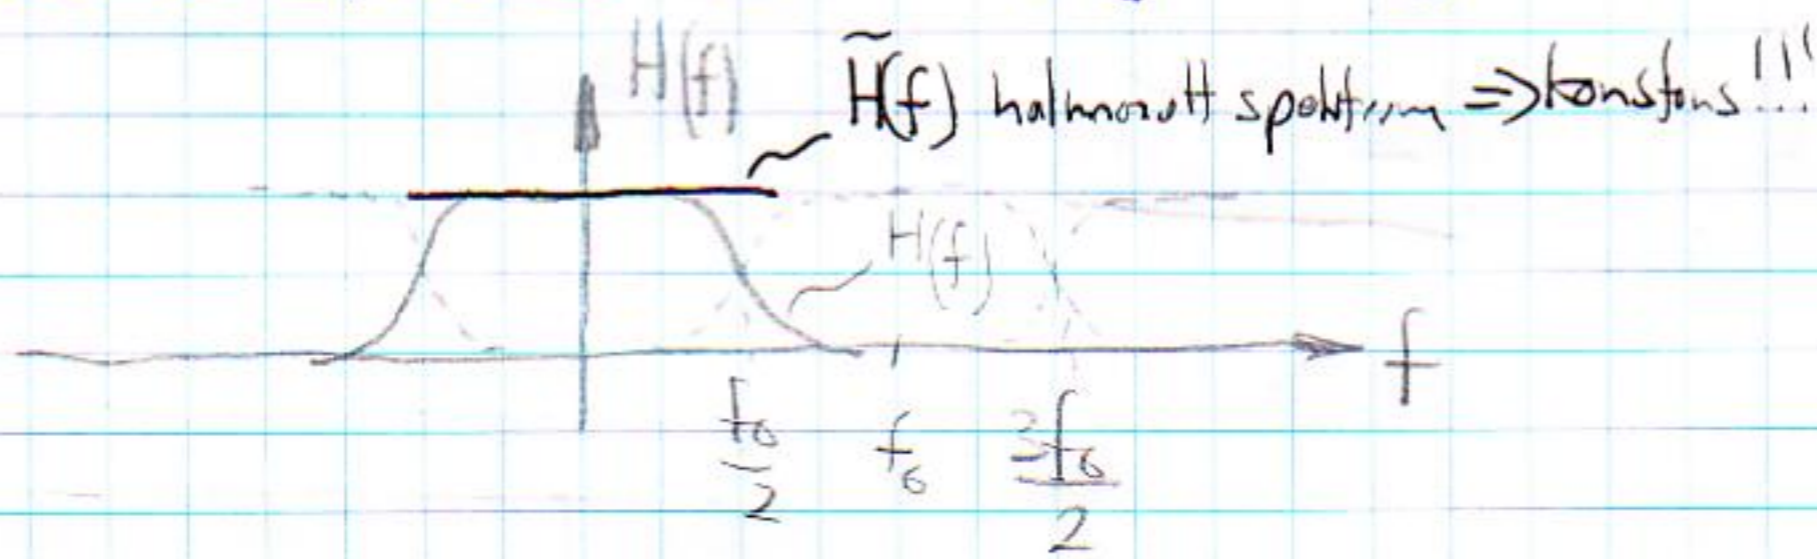 H(f)
H̃(f) halmozott spektrum => konstans!!!
H(f)
f
f₀/2 f₀ 3f₀/2